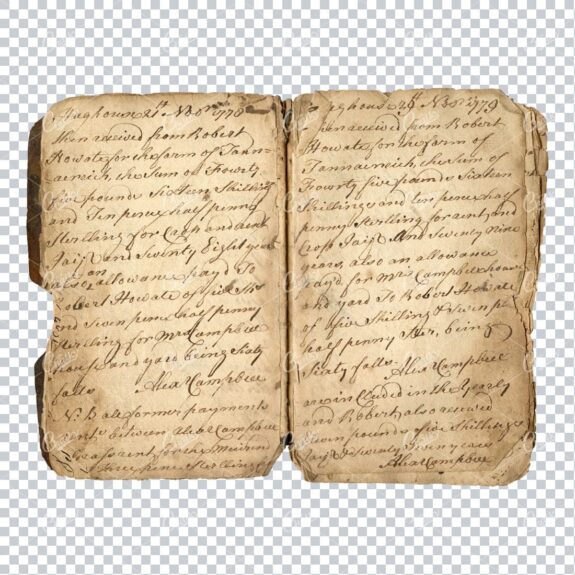 21st Novr 1778
then received from Robert
Howate for the farm of Tann-
aerieich, the Sum of Fowrty
five pounds Sixteen Shillings
and Ten pence half penny
Sterling for Cagh and rent
Jaist and Twenty Eight year
also an allowance pay'd To
Robert Howate of five Shs
and Seven pence half penny
Sterling for Mrs Campbell
house and yard being Sixty
falls Alexr Campbell
N: B all former payments
between Alexr Campbell
rent for the
three pence Sterling
29th Novr 1779
then received from Robert
Howate for the farm of
Tannaerieich, the Sum of
Fowrty five pounds Sixteen
Shillings and ten pence half
penny Sterling for and
Crop Jaist And Seventy Nine
years, also an allowance
pay'd for Mrs Campbell house
and yard To Robert Howate
of five Shilling & Seven pence
half penny Ster, being
Sixty falls Alexr Campbell
are included in the Yearly
and Robert also received
Seven pounds five Shillings
Jaist & Seventy
Alexr Campbell